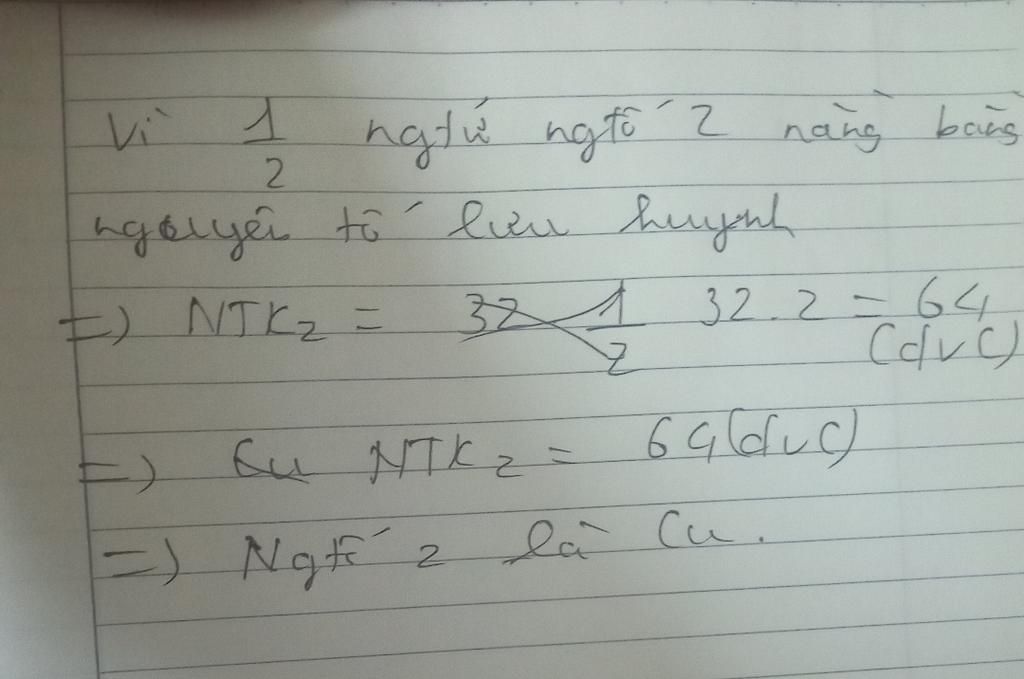 Vì 1/2 ngtử ngtố Z nặng bằng
nguyên tố lưu huynh
=) NTKz = 32 1/2 32.2 = 64
(đvC)
=) Cu NTKz = 64(đvC)
=) Ngtố z là Cu.